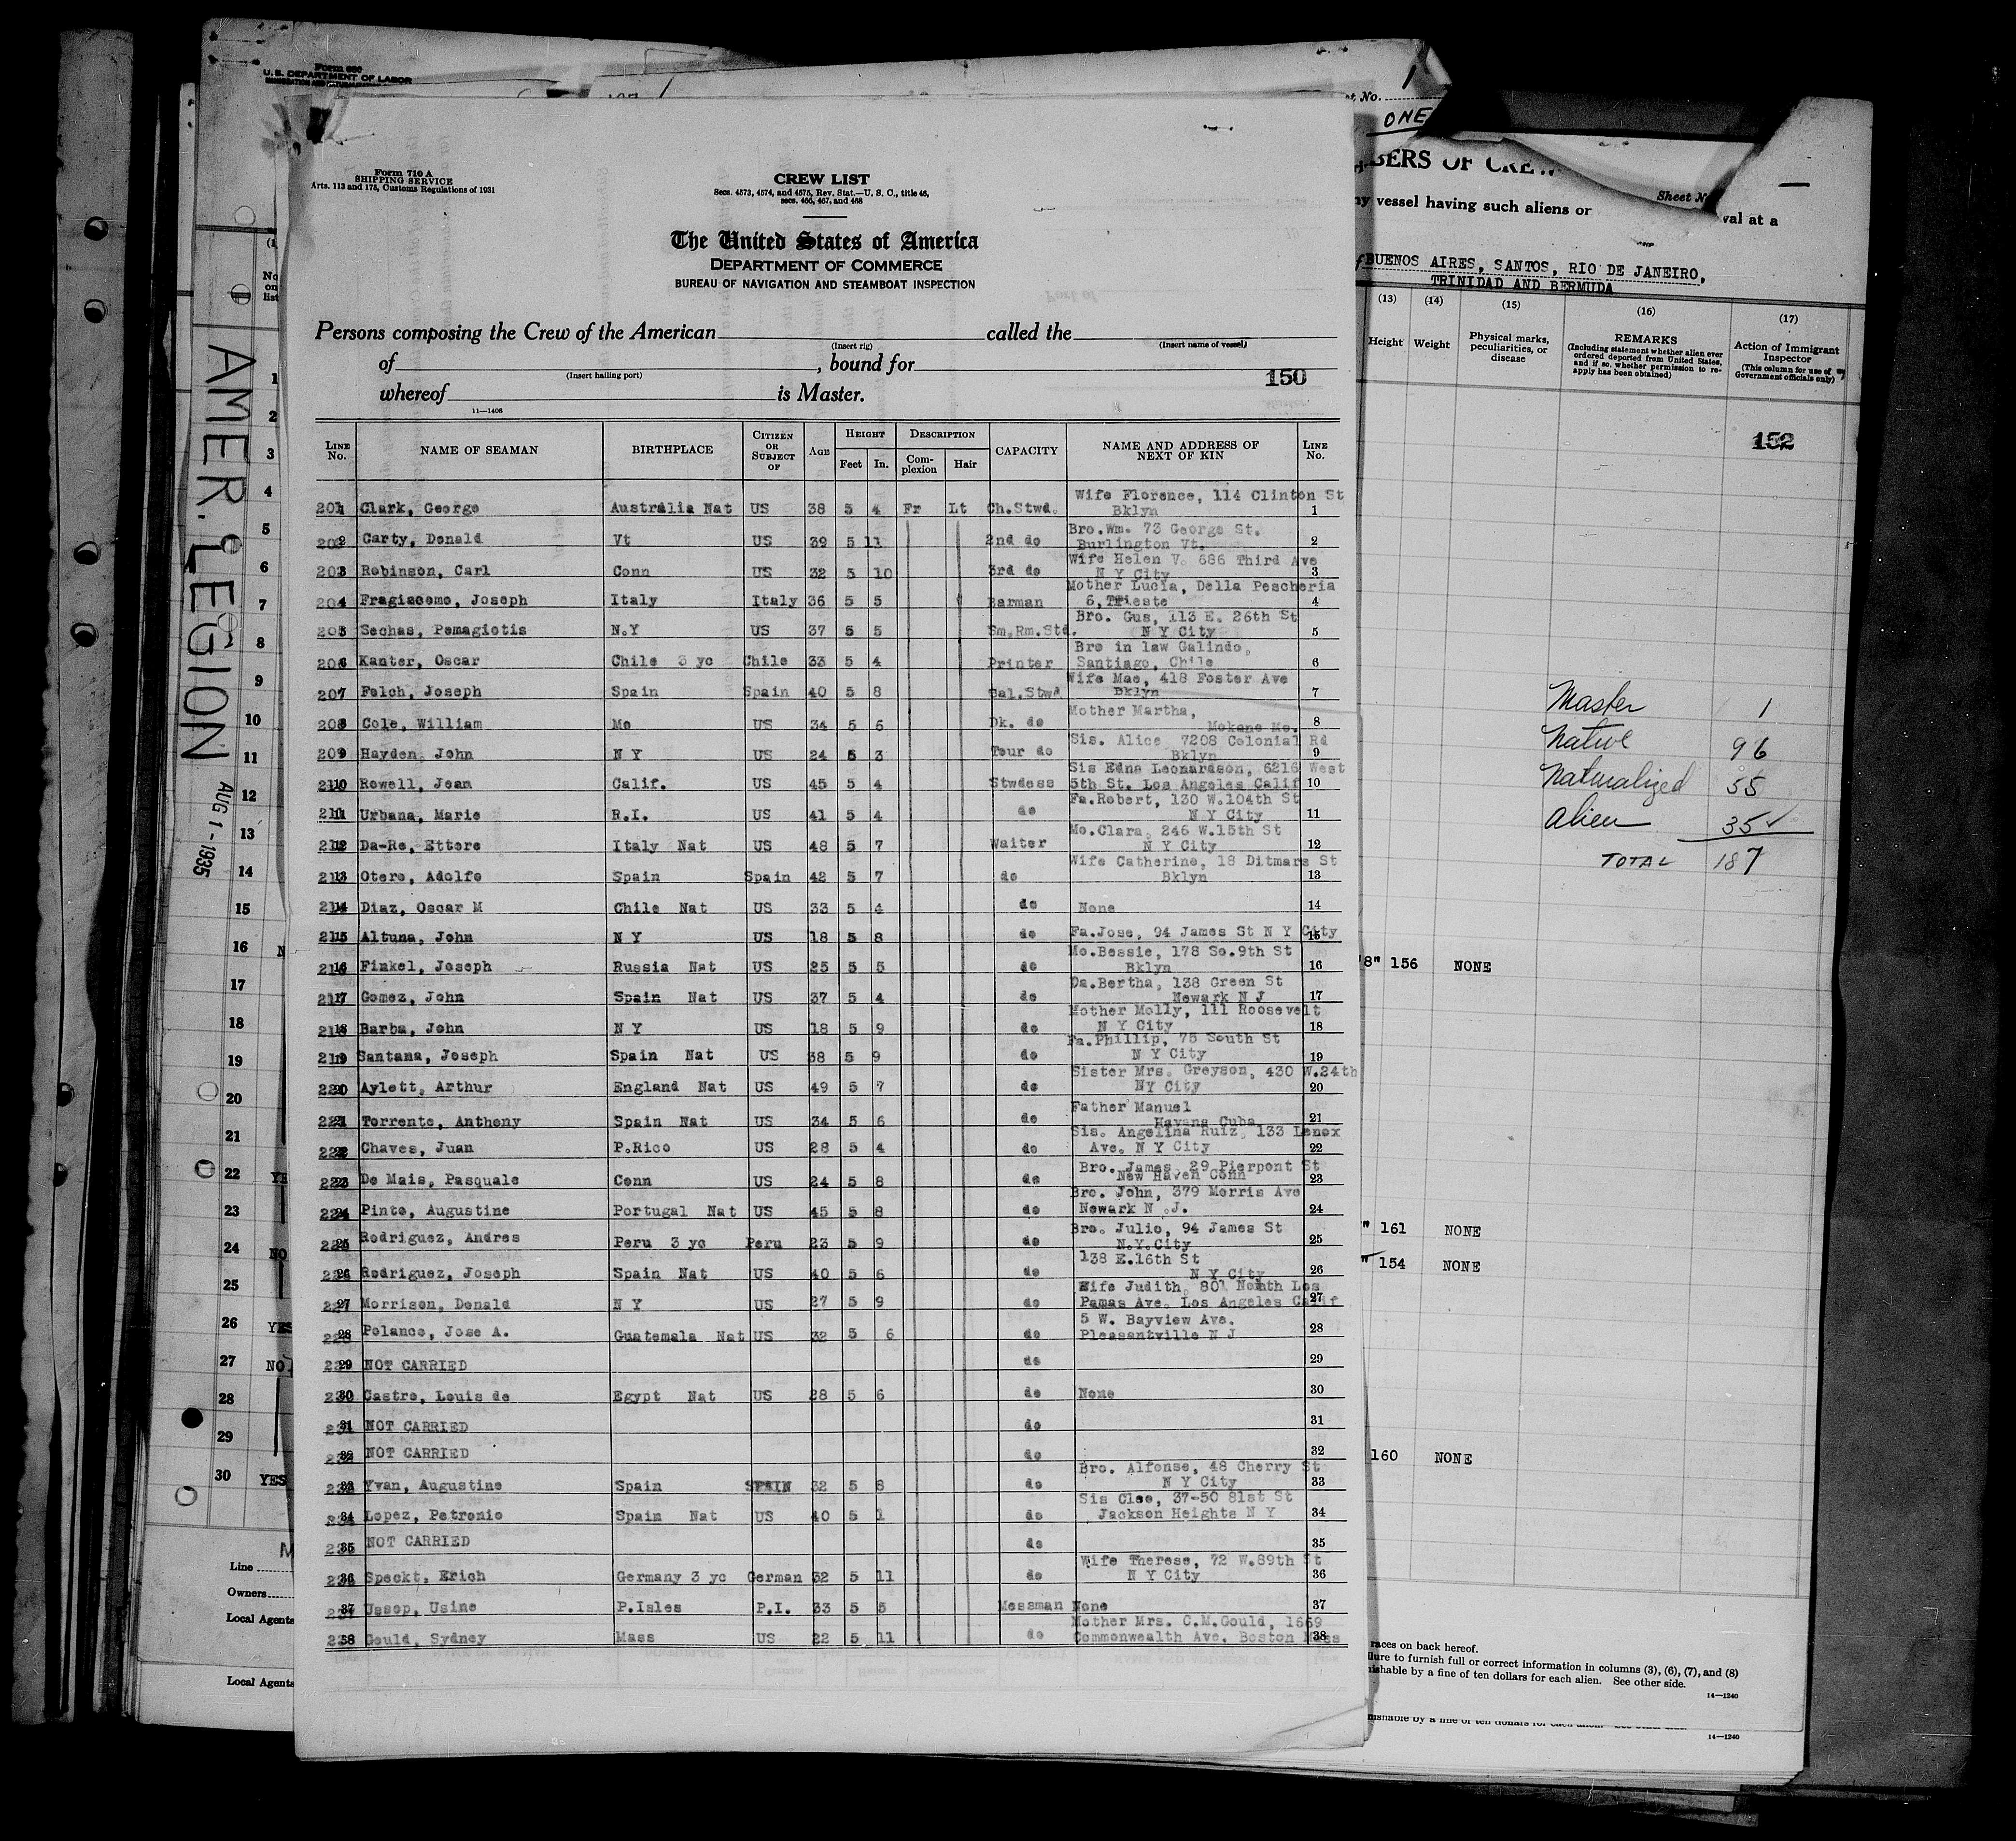 Form 680
U.S. DEPARTMENT OF LABOR
AMER. LEGION
AUG 1-1935
Form 710 A
SHIPPING SERVICE
Arts. 113 and 175, Customs Regulations of 1931
CREW LIST
Secs. 4573, 4574, and 4575, Rev. Stat.—U. S. C., title 46,
secs. 466, 467, and 468
The United States of America
DEPARTMENT OF COMMERCE
BUREAU OF NAVIGATION AND STEAMBOAT INSPECTION
Persons composing the Crew of the American called the
(Insert rig) (Insert name of vessel)
of , bound for
(Insert hailing port)
150
whereof is Master.
11—1408
LINE No. NAME OF SEAMAN BIRTHPLACE CITIZEN OR SUBJECT OF AGE HEIGHT Feet In. DESCRIPTION Complexion Hair CAPACITY NAME AND ADDRESS OF NEXT OF KIN LINE No.
201 Clark, George Australia Nat US 38 5 4 Fr Lt Ch.Stwd. Wife Florence, 114 Clinton St Bklyn 1
202 Carty, Donald Vt US 39 5 11 2nd do Bro.Wm. 73 George St. Burlington Vt. 2
203 Robinson, Carl Conn US 32 5 10 3rd do Wife Helen V. 686 Third Ave N Y City 3
204 Fragiacomo, Joseph Italy Italy 36 5 5 Barman Mother Lucia, Della Pescheria 6, Trieste 4
205 Sechas, Pemagiotis N.Y US 37 5 5 Sm.Rm.Std. Bro. Gus, 113 E. 26th St N Y City 5
206 Kanter, Oscar Chile 3 yc Chile 33 5 4 Printer Bro in law Galindo, Santiago, Chile 6
207 Folch, Joseph Spain Spain 40 5 8 Sal.Stwd Wife Mae, 418 Foster Ave Bklyn 7
208 Cole, William Mo US 34 5 6 Dk. do Mother Martha, Mokane Mo. 8
209 Hayden, John N Y US 24 5 3 Tour do Sis. Alice, 7208 Colonial Rd Bklyn 9
210 Rowell, Jean Calif. US 45 5 4 Stwdess Sis Edna Leonardson, 6216 West 5th St. Los Angeles Calif 10
211 Urbana, Marie R.I. US 41 5 4 do Fa.Robert, 130 W.104th St N Y City 11
212 Da-Re, Ettore Italy Nat US 48 5 7 Waiter Mo.Clara, 246 W.15th St N Y City 12
213 Otero, Adolfo Spain Spain 42 5 7 do Wife Catherine, 18 Ditmars St Bklyn 13
214 Diaz, Oscar M Chile Nat US 33 5 4 do None 14
215 Altuna, John N Y US 18 5 8 do Fa.Jose, 94 James St N Y City 15
216 Finkel, Joseph Russia Nat US 25 5 5 do Mo.Bessie, 178 So.9th St Bklyn 16
217 Gomez, John Spain Nat US 37 5 4 do Da.Bertha, 138 Green St Newark N J 17
218 Barba, John N Y US 18 5 9 do Mother Molly, 111 Roosevelt N Y City 18
219 Santana, Joseph Spain Nat US 38 5 9 do Fa.Phillip, 75 South St N Y City 19
220 Aylett, Arthur England Nat US 49 5 7 do Sister Mrs. Greyson, 430 W.24th NY City 20
221 Torrente, Anthony Spain Nat US 34 5 6 do Father Manuel Havana Cuba 21
222 Chaves, Juan P.Rico US 28 5 4 do Sis. Angelina Ruiz, 133 Lenox Ave. N Y City 22
223 De Mais, Pasquale Conn US 24 5 8 do Bro. James, 29 Pierpont St New Haven Conn 23
224 Pinto, Augustine Portugal Nat US 45 5 8 do Bro. John, 379 Morris Ave Newark N.J. 24
225 Rodriguez, Andres Peru 3 yc Peru 23 5 9 do Bro. Julio, 94 James St N.Y.City 25
226 Rodriguez, Joseph Spain Nat US 40 5 6 do 138 E.16th St N Y City 26
227 Morrison, Donald N Y US 27 5 9 do Wife Judith, 801 North Los Pamas Ave. Los Angeles Calif 27
228 Polanco, Jose A. Guatemala Nat US 32 5 6 do 5 W. Bayview Ave. Pleasantville N J 28
229 NOT CARRIED do 29
230 Castro, Louis de Egypt Nat US 28 5 6 do None 30
231 NOT CARRIED do 31
232 NOT CARRIED do 32
233 Yvan, Augustine Spain SPAIN 32 5 8 do Bro. Alfonse, 48 Cherry St N Y City 33
234 Lopez, Petronio Spain Nat US 40 5 1 do Sis Cleo, 37-50 81st St Jackson Heights N Y 34
235 NOT CARRIED do 35
236 Speckt, Erich Germany 3 yc German 32 5 11 do Wife Therese, 72 W.89th St N Y City 36
237 Ussop, Usine P.Isles P.I. 33 5 5 Messman None 37
238 Gould, Sydney Mass US 22 5 11 do Mother Mrs. C.M.Gould, 1669 Commonwealth Ave. Boston Mass 38
No. 1
ONE
BERS OF CREW
Sheet N
ny vessel having such aliens or
val at a
BUENOS AIRES, SANTOS, RIO DE JANEIRO,
TRINIDAD AND BERMUDA
(13) (14) (15) (16) (17)
Height Weight Physical marks, peculiarities, or disease
REMARKS
(Including statement whether alien ever ordered deported from United States, and if so, whether permission to re-apply has been obtained)
Action of Immigrant Inspector
(This column for use of Government officials only)
152
Master 1
Native 96
Naturalized 55
Alien 35 ✓
TOTAL 187
8" 156 NONE
" 161 NONE
" 154 NONE
160 NONE
No. on list
1
2
3
4
5
6
7
8
9
10
11
12
13
14
15
16 N
17
18
19
20
21
22 YE
23
24 NO
25
26 YES
27 NO
28
29
30 YES
Line
Owners
Local Agents
Local Agents
races on back hereof.
lure to furnish full or correct information in columns (3), (6), (7), and (8)
ishable by a fine of ten dollars for each alien. See other side.
14—1240
14—1240